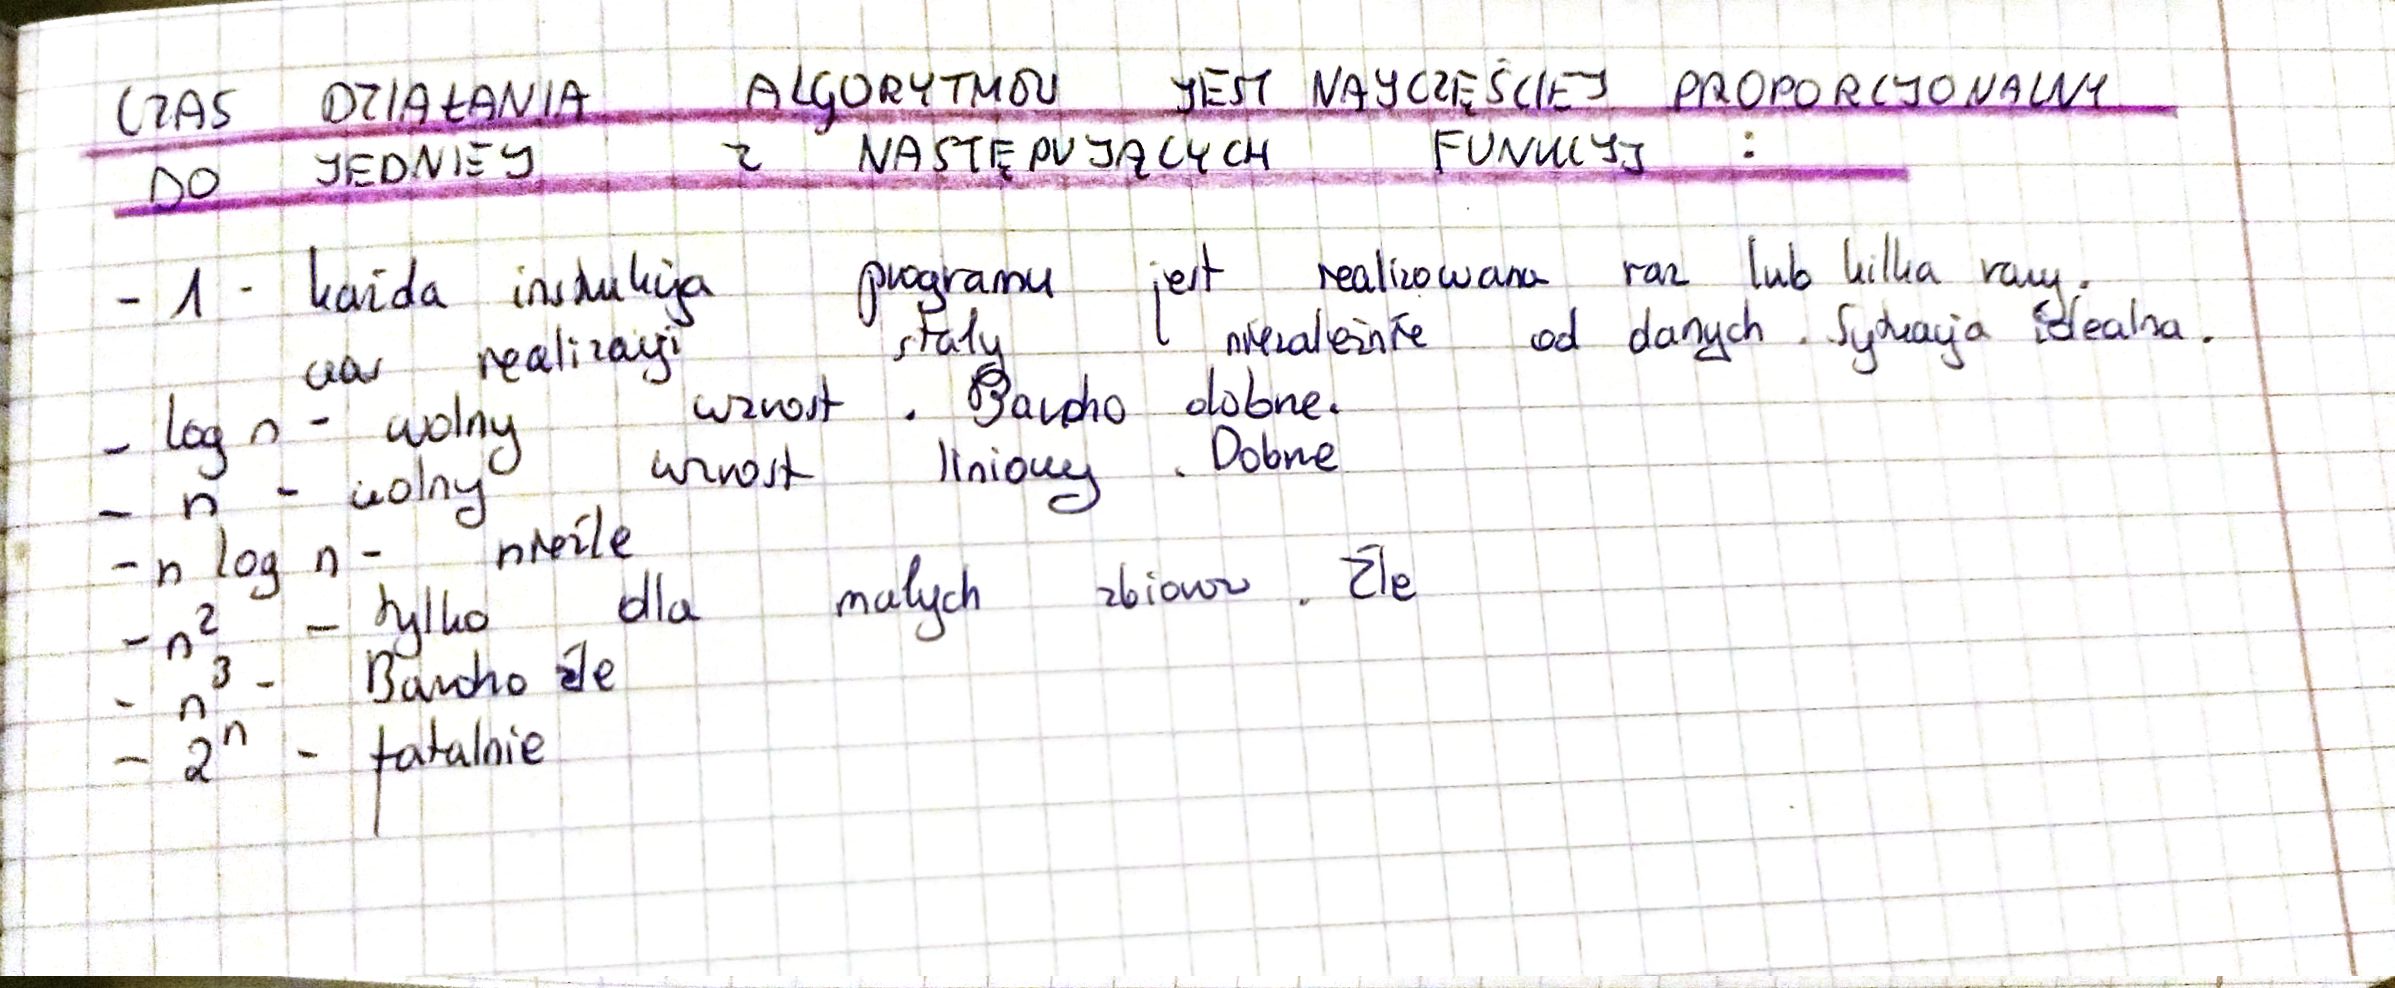 CZAS DZIAŁANIA ALGORYTMÓW JEST NAJCZĘŚCIEJ PROPORCJONALNY
DO JEDNEJ Z NASTĘPUJĄCYCH FUNKCJI :
- 1 - każda instrukcja programu jest realizowana raz lub kilka razy.
czas realizacji stały niezależnie od danych. Sytuacja idealna.
- log n - wolny wzrost. Bardzo dobrze.
- n - wolny wzrost liniowy. Dobrze
- n log n - nieźle
- n² - tylko dla małych zbiorów. Źle
- n³ - Bardzo źle
- 2ⁿ - fatalnie